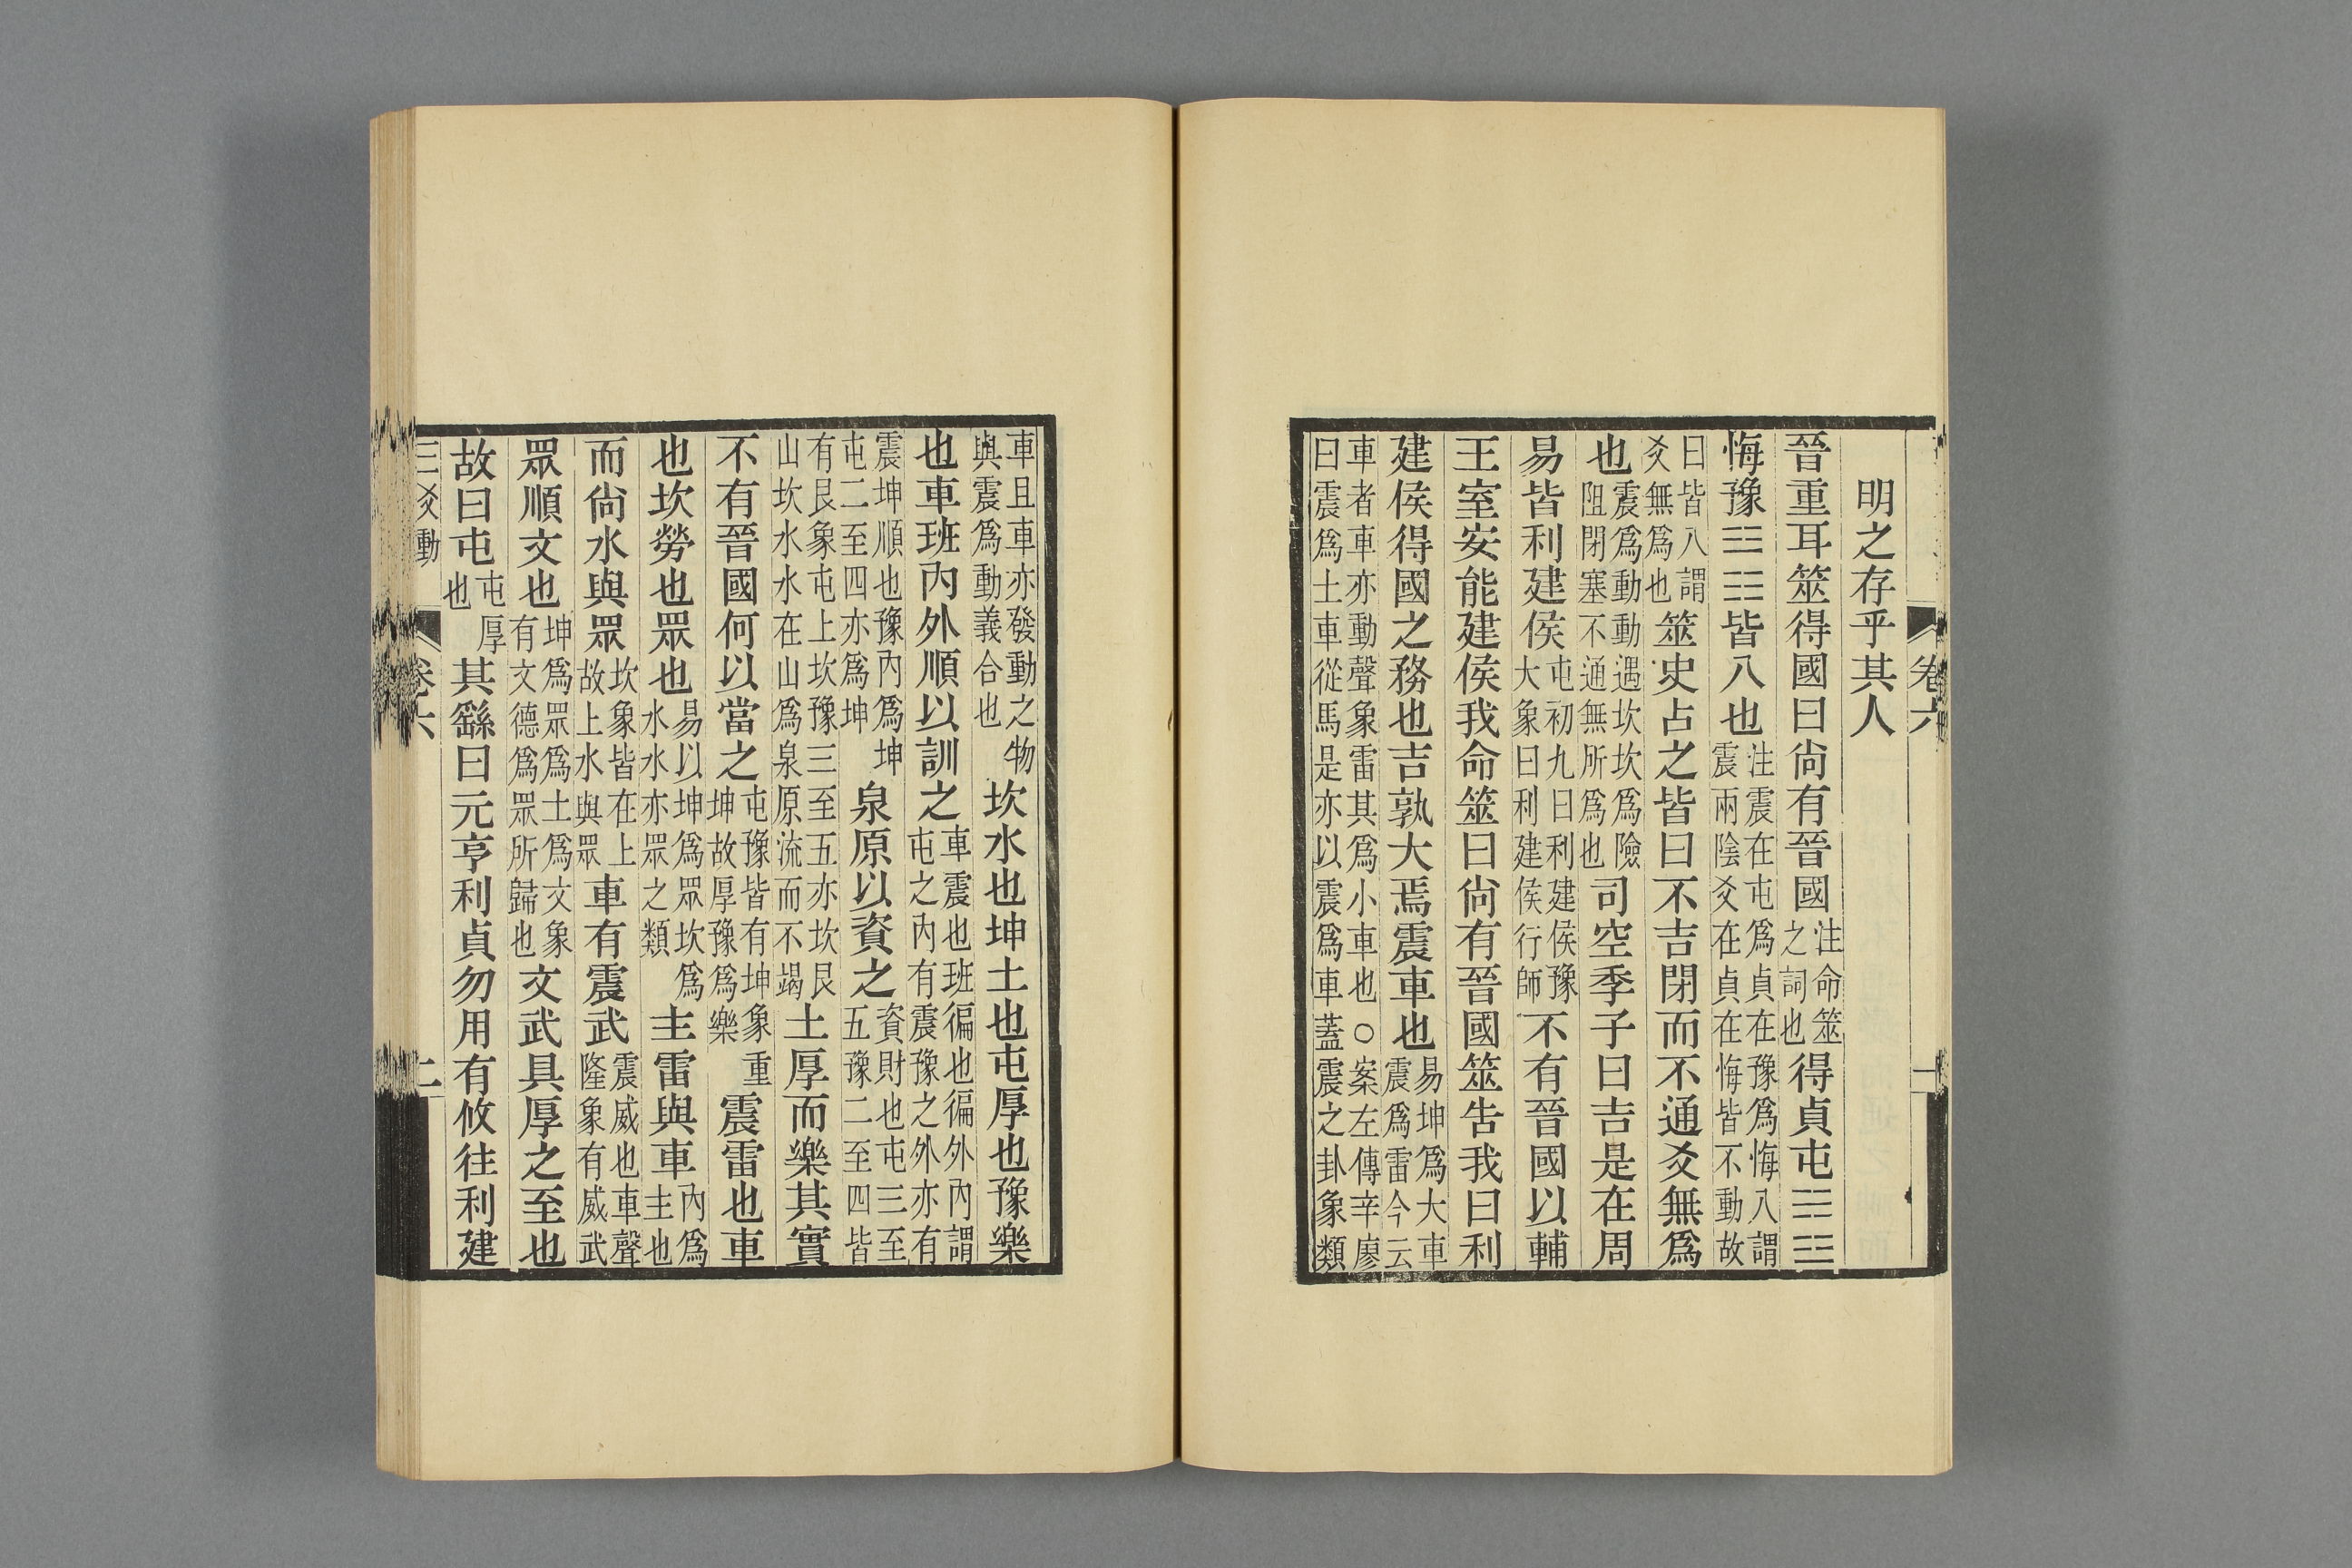 卷六
一
明之存乎其人
晉重耳筮得國曰尚有晉國注命筮之詞也得貞屯䷂
悔豫䷏皆八也注震在屯爲貞在豫爲悔八謂震兩陰爻在貞在悔皆不動故
曰皆八謂爻無爲也筮史占之皆曰不吉閉而不通爻無爲
也震爲動動遇坎坎爲險阻閉塞不通無所爲也司空季子曰吉是在周
易皆利建侯屯初九曰利建侯豫大象曰利建侯行師不有晉國以輔
王室安能建侯我命筮曰尚有晉國筮告我曰利
建侯得國之務也吉孰大焉震車也易坤爲大車震爲雷今云
車者車亦動聲象雷其爲小車也○案左傳辛廖曰震爲土車從馬是亦以震爲車蓋震之卦象類
車且車亦發動之物與震爲動義合也坎水也坤土也屯厚也豫樂
也車班內外順以訓之車震也班徧也徧外內謂屯之內有震豫之外亦有
震坤順也豫內爲坤屯二至四亦爲坤泉原以資之資財也屯三至五豫二至四皆
有艮象屯上坎豫三至五亦坎艮山坎水水在山爲泉原流而不竭土厚而樂其實
不有晉國何以當之屯豫皆有坤象重坤故厚豫爲樂震雷也車
也坎勞也眾也易以坤爲眾坎爲水水亦眾之類主雷與車內爲主也
而尚水與眾坎象皆在上故上水與眾車有震武震威也車聲隆象有威武
眾順文也坤爲眾爲土爲文象有文德爲眾所歸也文武具厚之至也
故曰屯屯厚也其繇曰元亨利貞勿用有攸往利建
三爻動
卷六
二